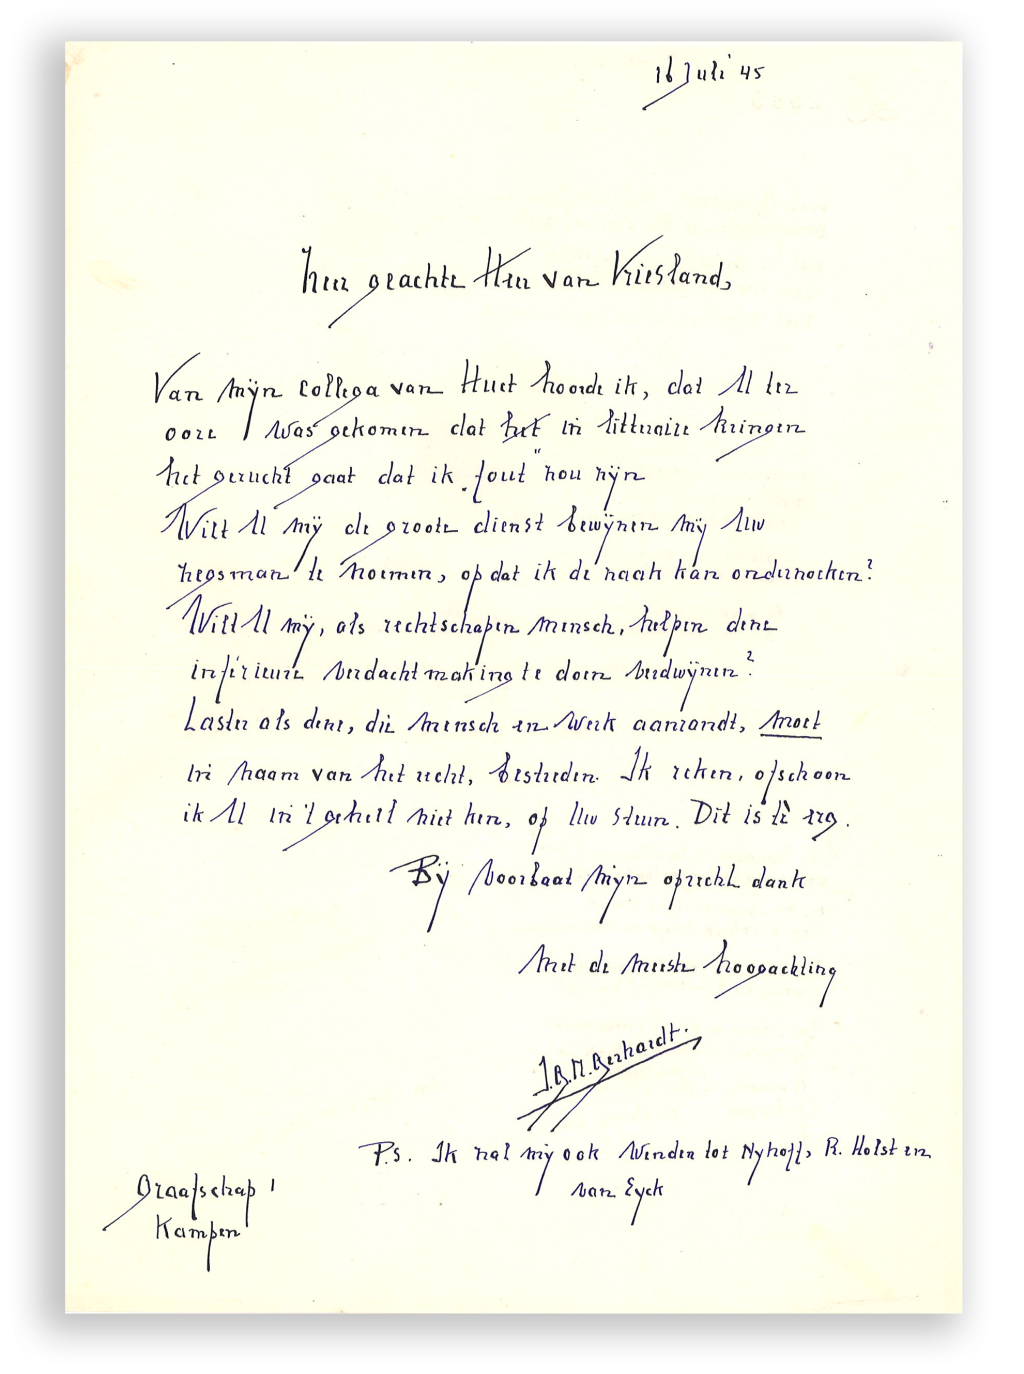 16 Juli '45
Zeer geachte Heer van Vriesland,
Van mijn collega van Huet hoorde ik, dat U ter
oore was gekomen dat het in litteraire kringen
het gerucht gaat dat ik „fout" zou zijn
Wilt U mij de groote dienst bewijzen mij Uw
zegsman te noemen, opdat ik de zaak kan onderzoeken?
Wilt U mij, als rechtschapen mensch, helpen deze
inferieure verdachtmaking te doen verdwijnen?
Laster als deze, die mensch en werk aanrandt, moet
in naam van het recht, bestreden. Ik reken, ofschoon
ik U in 't geheel niet ken, op Uw steun. Dit is té erg.
Bij voorbaat mijn oprecht dank
Met de meeste hoogachting
I.G.M. Gerhardt.
P.s. Ik zal mij ook wenden tot Nijhoff, R. Holst en
van Eyck
Graafschap 1
Kampen